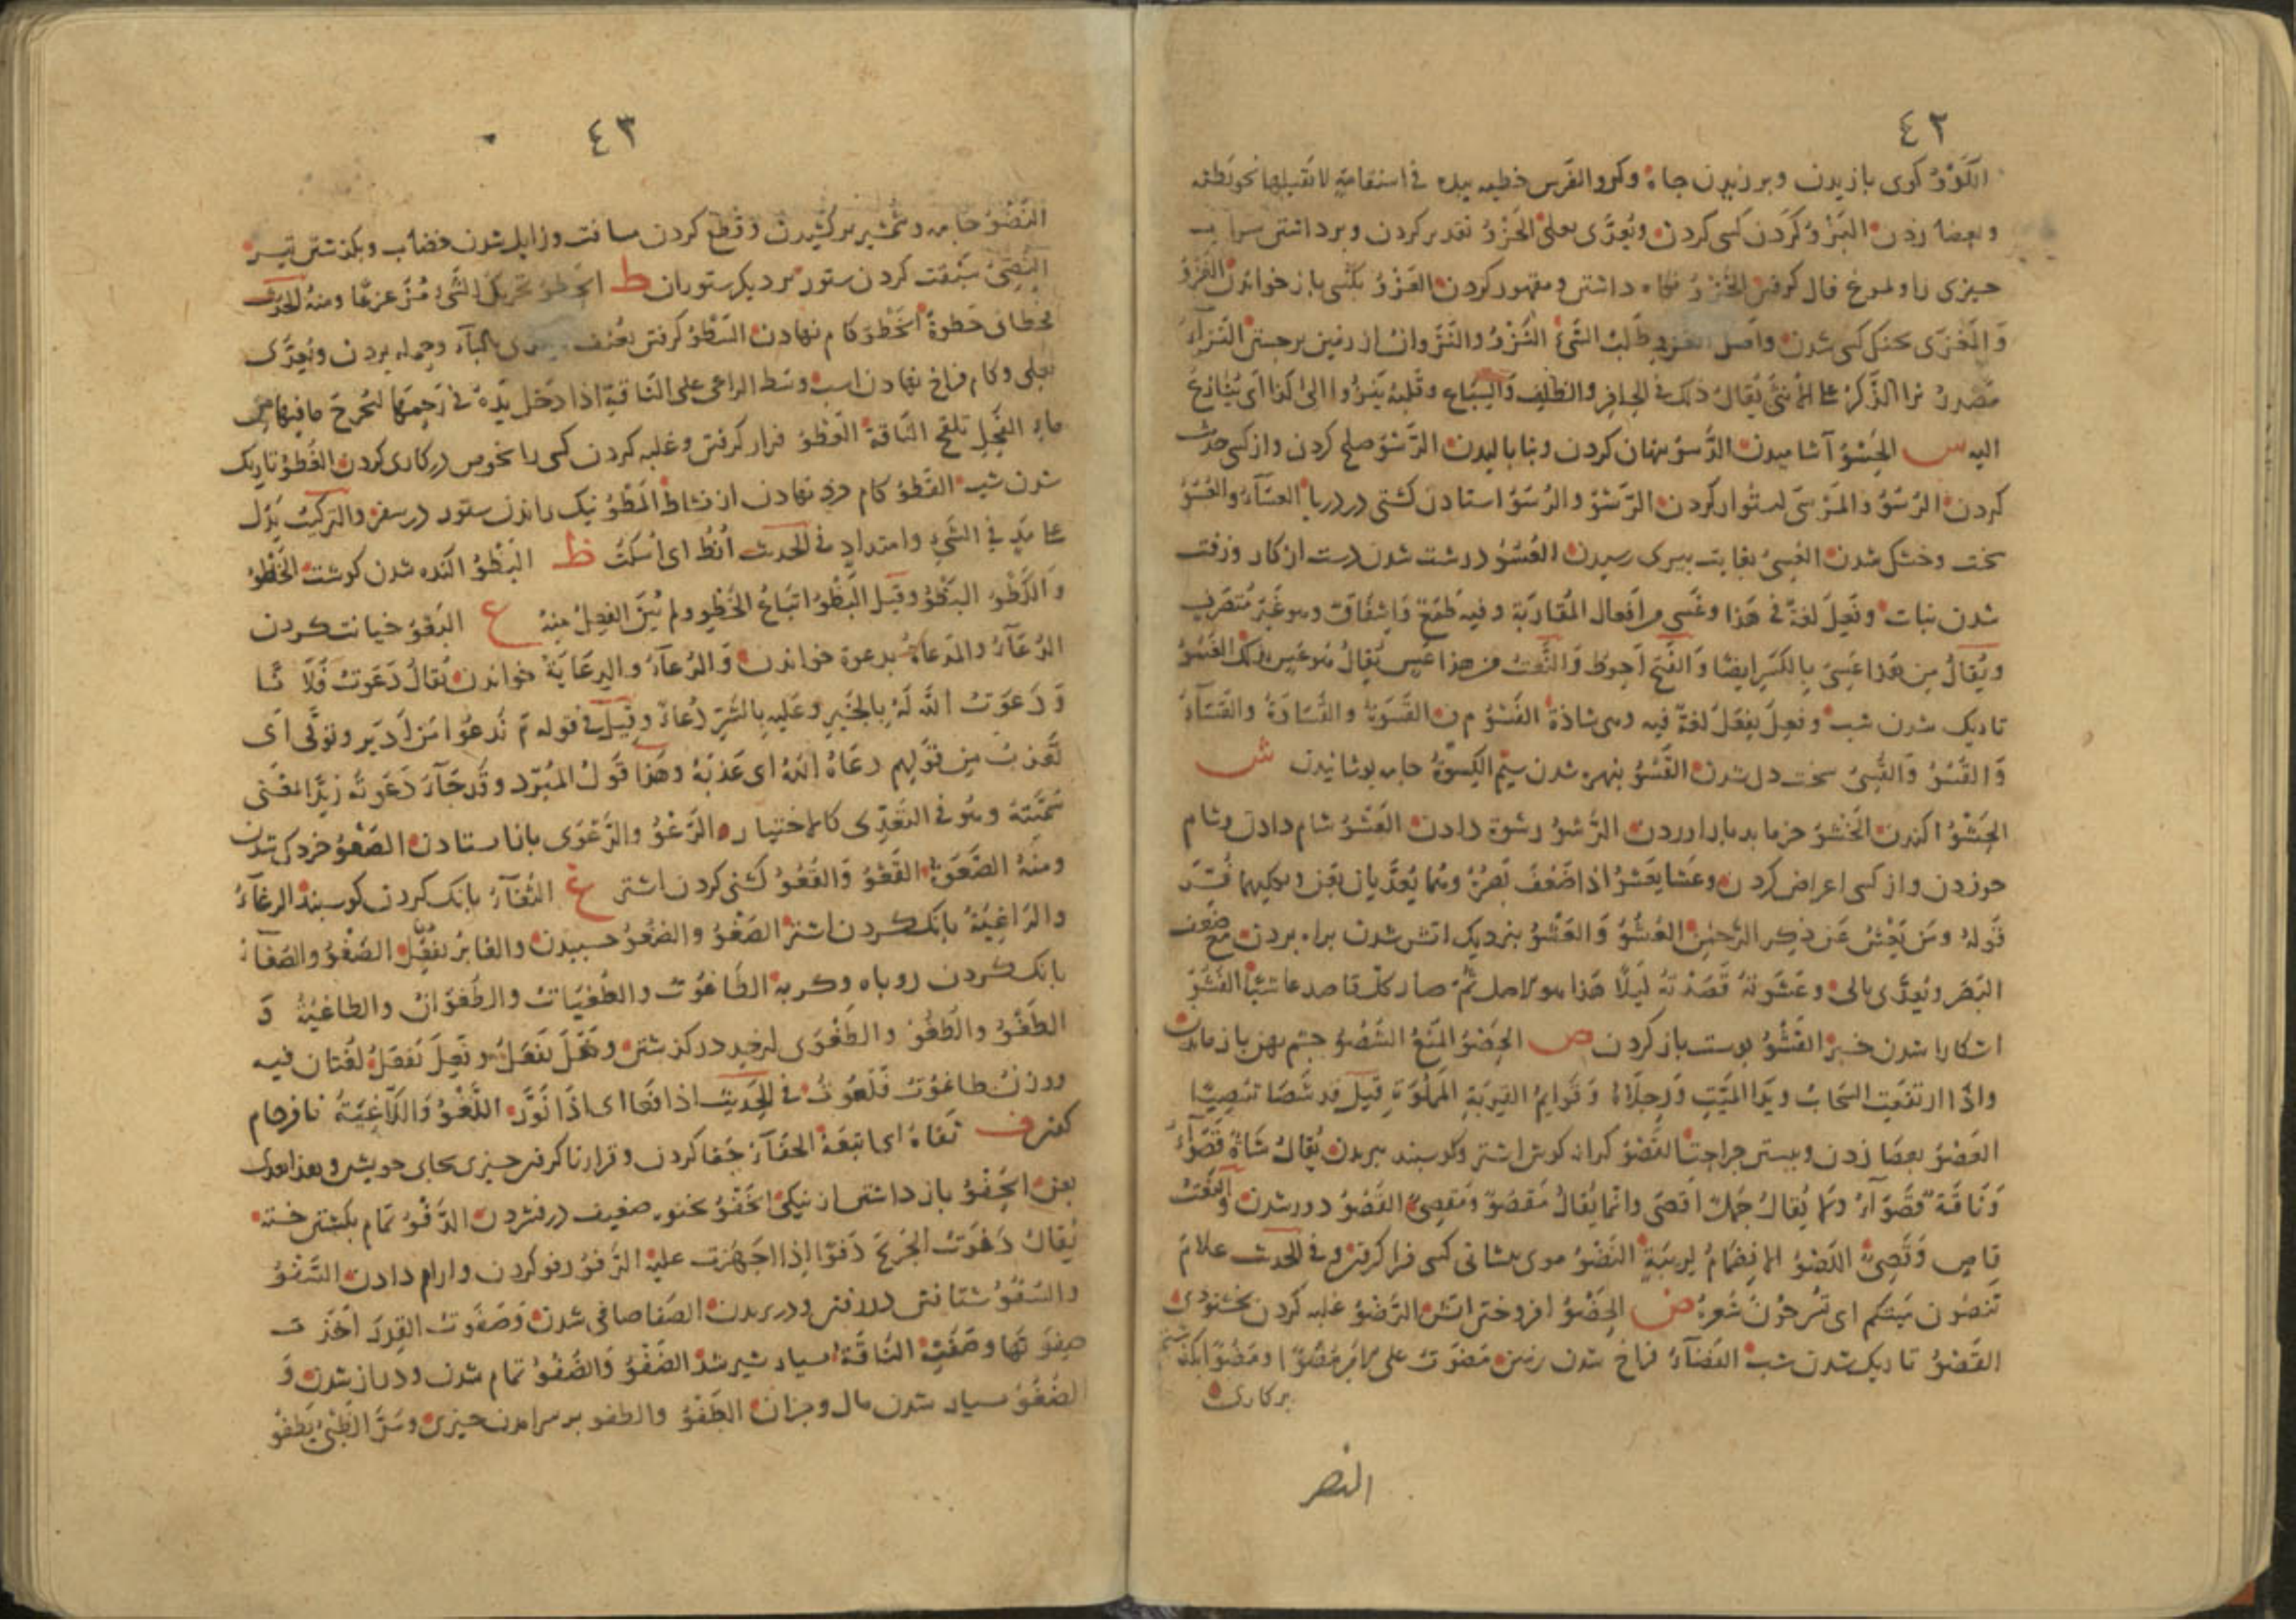 ٤٢
الكرو كوى بازيدن وبرزيدن جاه وكرو الفرس خطيه بيده فى استقامة لا تقبلها نحو بطنه
وبعصا زدن البزو كردن كسى كردن ويُعدّى بعلى الحَزْوُ تقدير كردن وبرداشتن سراب
چيزى را ولمرغ فال كرفتن الخزو نكاه داشتن ومقهور كردن العَزْوُ بكسى باز خواندن الغَزْوُ
وَالمَغْزَى بجنك كسى شدن واصل الغزو طَلَبُ الشَّئِ النَّزْوُ والنَّزَوانُ از زمين برجستن النِّزاءُ
مَصْدرُ نزا الذَّكَرُ على الأُنثى يُقالُ ذلك فى الحافر والظِّلفِ وَالسِّباع وقلبه يَنْزُو الى كذا اى يُنَازِعُ
اليه س الحَسْوُ آشاميدن الدَّسْوُ پنهان كردن ونا باليدن الرَّسْوُ صلح كردن واز كسى حديث
كردن الرُّسُوُّ والمَرْسَى استوار كردن الرَّسْوُ والرُّسُوُّ استادن كشتى در دريا العَسَاءُ والعُسُوُّ
سخت وخشك شدن العُسِىُّ بغايت پيرى رسيدن العُسُوُّ درشت شدن دست از كار وزفت
شدن نبات وفَعِلَ لغةٌ فى هَذا وعَسَى من افعال المُقاربَة وفيه طَمَعٌ وَاِشفَاقٌ وهو غَيْر مُتَصَرِّفٍ
ويُقالُ مِن هَذا عَسِىَ بِالكَسْرِ ايضًا وَالفَتح اَجوَدُ وَالنَّعتُ من هذا عَسٍ يُقالُ هُو عَسٍ بذلك الغُسُوُّ
تاريك شدن شب وفعِلَ يفعَلُ لغةٌ فيه وهى شاذة الفَسْوُ م ن القَسْوَةُ والقَسَاوَةُ والقَسَاءُ
وَالقَسْوُ وَالقُسِىُّ سخت دل شدن القَسْوُ بنهره شدن سيم الكِسْوَةُ جامه بوشانيدن ش
الحَشْوُ اكندن الخَشْوُ خرما بد بار اوردن الرَّشْوُ رشوة دادن العَشْوُ شام دادن وشام
خوردن واز كسى اعراض كردن وعَشا يعشُو اذا ضَعُفَ بَصرُهُ وهُما يُعَدَّيان بعَن وبكليهما فُسِّرَ
قَولهُ ومَن يَعْشُ عَن ذِكرِ الرَّحمٰنِ العُشُوُّ وَالعَشْوُ بنزديك اتش شدن براه بردن مع ضعف
البَصَر ويُعدَّى بالى وعَشَوتهُ قَصَدْتهُ لَيلًا هَذا هو الاصل ثُمّ صار كلّ قاصد عاشيًا الفَشْوُ
اشكارا شدن خبر القَشْوُ بوست باز كردن ص الحَصْوُ المَنْعُ الشُّصُوُّ چشم بهن باز ماندن
واذا ارتفَعَت السَّحابُ ويَدا المَيّت وَرِجلَاهُ وَقوايمُ القِربَةِ المَملُوَّةِ قيلَ قد شَصَا تنصيصًا
العَصْوُ بعصا زدن وببستن جراحت القَصْوُ كرانه كوش اشتر وكوسبند ببريدن يُقالُ شاةٌ قَصْوآءُ
وَنَاقةٌ قَصْوآءُ ولا يُقالُ جَملٌ اَقصَى وانما يُقالُ مَقصُوٌّ ومَقصِىٌّ القُصُوُّ دور شدن وَالنَّعْتُ
قاصٍ وَقَصِىٌّ اللَّصْوُ الانضمامُ لِرِيبَةٍ النَّصْوُ موى پيشانى كسى فرا كرفتن وفى الحديث علامَ
تَنصُون مَيّتكم اى تُسَرِّحُونَ شَعرهُ ض الحَضْوُ افروختن اتش الرَّضْوُ غلبه كردن بخشنودى
الغَضْوُ تاريك شدن شب الفَضَآءُ فراخ شدن زمين مَضَوتُ على الامرِ مَضُوًّا ومُضُوًّا بكذشتم
بر كارى
النصر
٤٣
النَّضْوُ جامه وشمشير بر كشيدن وقطع كردن مسافت وزايل شدن خضاب وبكذشتن تير
النُّضِىُّ سَبْقت كردن ستور بر ديكر ستوران ط الخطو تحريك الشَّئِ مُزَعزعًا ومنهُ الحديث
فخطانى خَطوةً الخَطْوُ كام نهادن السَّطْوُ كرفتن بعُنف بالبآء وحمله بردن ويُعدَّى
بعلى وكام فراخ نهادن اسب وسَطا الراعى على النّاقةِ اذا دَخَل يَدَهُ فى رَحِمها ليُخرِجَ ما فيها من
مآءِ الفَحلِ تلقح النّاقة العَطْوُ فرا كرفتن وغلبه كردن كسى را بخوض در كارى كردن الغُطُوُّ تاريك
شدن شب القَطْوُ كام خرد نهادن از نشاط المَطْوُ نيك راندن ستور در سفر والتركيبُ يَدُلّ
على مَدٍّ فى الشَّئِ وامتداد فى الحديث اُنْطُ اى اُسكُتْ ظ البَظْوُ اكنده شدن كوشت الخَظْوُ
وَالكَظْوُ البَظْوُ وقيل البَظْوُ اتباعُ الخُظُوِ ولم يُبْنَ الفِعلُ منهُ ع البَعْوُ خيانت كردن
الدُّعَآءُ والمَدْعاةُ بدعوة خواندن وَالدُّعآءُ والدِعَايَةُ خواندن يُقالُ دَعَوتُ فُلانًا
وَدَعَوتُ اللّٰهَ لَهُ بِالخَيرِ وعَليهِ بِالشَّرِّ دُعاءً وقِيلَ فى قوله تَدعُوا مَن اَدبَر وتَولّى اَى
تُعَذّبُ مِن قولهم دعَاهُ اللّٰهُ اى عَذبَهُ وهَذا قَولُ المُبرّد وقَد جَآءَ دَعَوتُه زيدًا بمعنى
سَمَّيتهُ وهُو فى التعَدّى كالاختيار الرَّعْوُ والرَّعْوَى باز استادن الصَّعْوُ خرد ك شدن
ومنهُ الصَّعْوَةُ القَعْوُ وَالقُعُوُّ كشنى كردن اشتر غ الثُّغآءُ بانك كردن كوسبند الرغآءُ
والرّاغِيَةُ بانك كردن اشتر الصَّغْوُ والصُّغُوُّ چسبيدن والغابر يَفعَلُ الضَّغْوُ والضُغآءُ
بانك كردن روباه وكربه الطّاغُوتُ والطُّغيَاتُ والطُّغوَانُ والطاغيَةُ وَ
الطَّغْوُ والطُّغُوُّ والطَّغْوَى از حد در كذشتن وفَعَلَ يَفعَلُ وفَعِلَ يَفعَلُ لُغتان فيه
ووزنُ طاغوُت فَلَعُوتٌ فى الحديث اذا فغا اى اذا نَوَّر اللَّغْوُ وَاللّاغيَةُ نا فرجام
كفتن ف ثفاهُ اى اتبعَهُ الجَفَآءُ جَفا كردن وقرار نا كرفتن چيزى بجاى خويش وهذا يعدى
بعن الحَفْوُ باز داشتن از نيكى الخَفْوُ بخنوه ضعيف درفشردن الدَّفْوُ تمام بكشتن خسته
يُقالُ دَفَوتُ الجَرِيحَ دَفوًا اِذا اَجهَزت عليه الرَّفْوُ رفو كردن وارام دادن السَّفْوُ
والسُّفُوُّ شتافتن در رفتن ودر پريدن الصَّفا صافى شدن وَصَفَوتُ القِدرَ اَخَذتُ
صِفوَتَها وصَفَت النّاقة بسيار شير شد الضَّفْوُ وَالضُّفُوُّ تمام شدن ودراز شدن وَ
الضُّفُوُّ بسيار شدن مال وجزان الطَّفْوُ والطفو بر سر امدن چيزى ومَرَّ الظَّبىُ يَطفُو